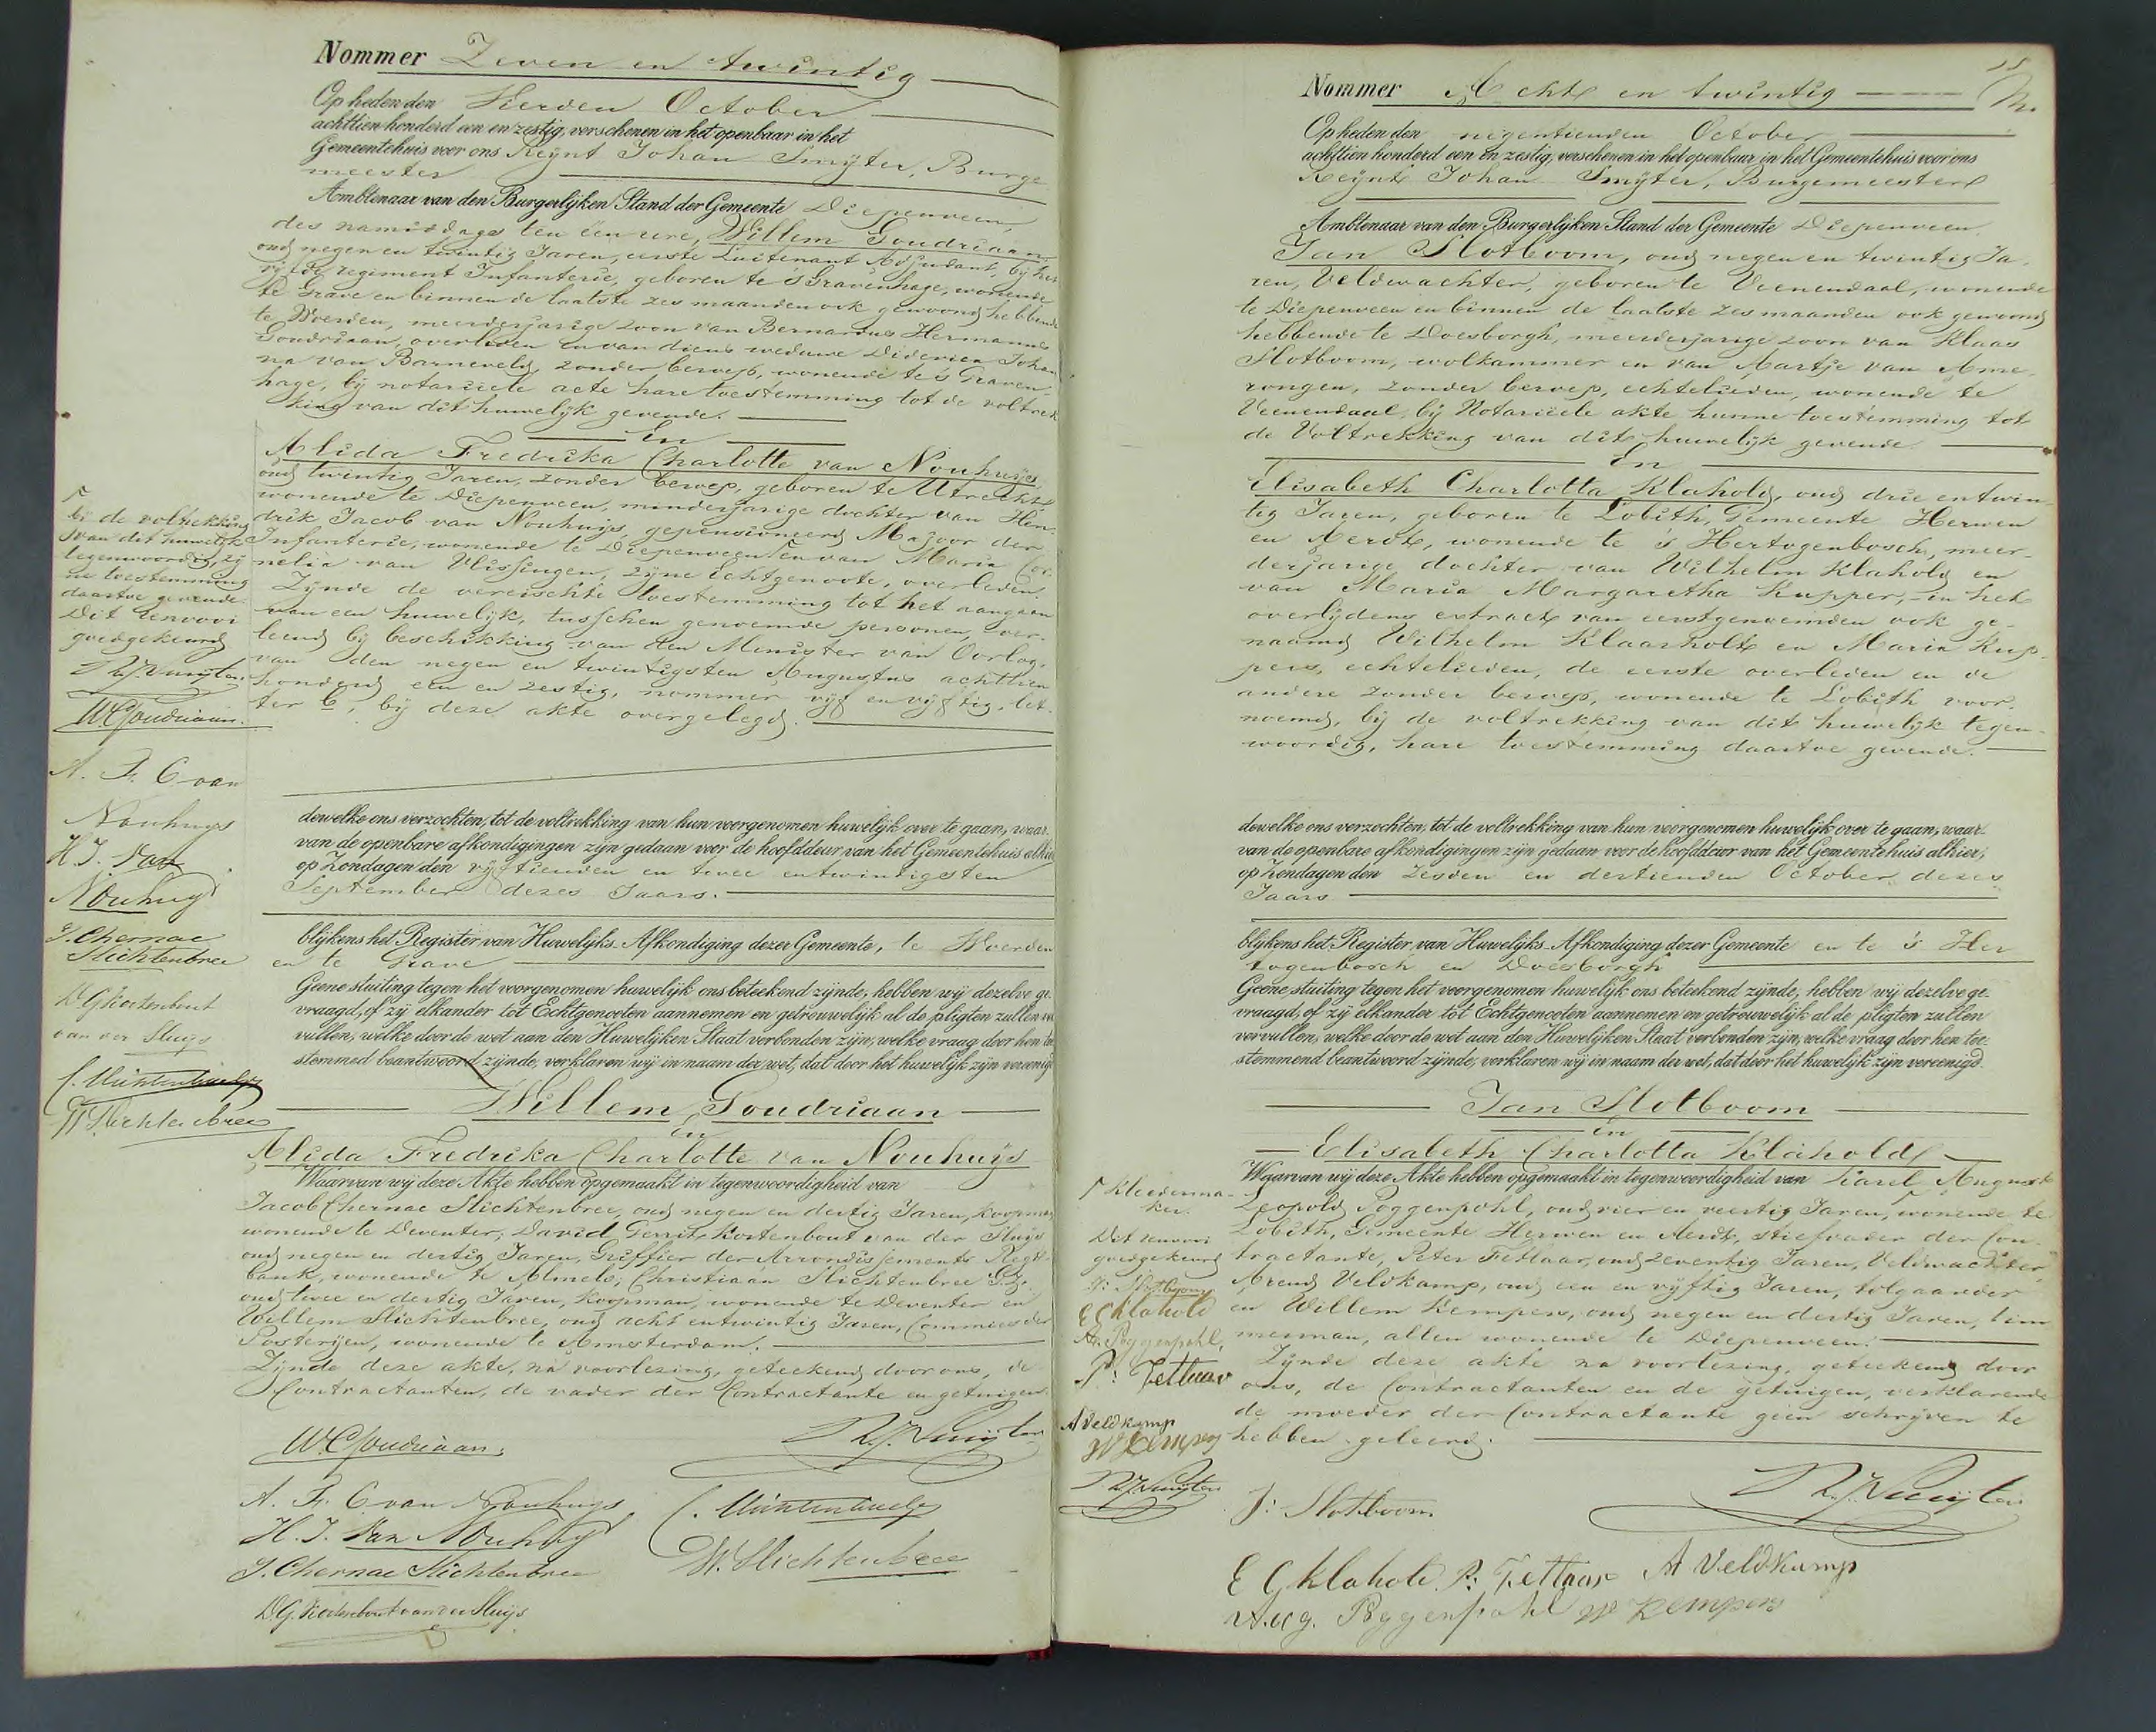 Nommer Zeven en twintig
Op heden den Vierden October
achttien honderd een en zestig, verschenen in het openbaar in het
Gemeentehuis voor ons Reijnt Johan Smijter, Burge
meester
Ambtenaar van den Burgerlijken Stand der Gemeente Diepenveen,
des namiddags ten één ure, Willem Goudriaan,
oud negen en twintig Jaren, eerste Luitenant Adjudant, bij het
regiment Infanterie, geboren te 's Gravenhage, wonende
te Grave en binnen de laatste zes maanden ook gewoond hebbende
te Woerden, meerderjarige zoon van Bernardus Hermanus
Goudriaan, overleden en van diens weduwe Diderica Johan
na van Barneveld, zonder beroep, wonende te 's Graven
hage, bij notariëele acte hare toestemming tot de voltrek
king van dit huwelijk gevende.
En
Alida Fredrika Charlotte van Nouhuijs
oud twintig Jaren, zonder beroep, geboren te Utrecht
wonende te Diepenveen, minderjarige dochter van Hen
drik Jacob van Nouhuijs, gepensioneerd Majoor der
Infanterie, wonende te Diepenveen en van Maria Cor
nelia van Vlissingen, zijne Echtgenoote, overleden.
Zijnde de vereischte toestemming tot het aangaan
van een huwelijk, tusschen genoemde personen, ver-
leend bij beschikking van den Minister van Oorlog,
van den negen en twintigsten Augustus achttien
honderd een en zestig, nommer vijf en vijftig, let-
ter C, bij deze akte overgelegd.
bij de voltrekking
van dit huwelijk
tegenwoordig, zij
ne toestemming
daartoe gevende.
Dit renvooi
goedgekeurd
R.J. Smijter
W. Goudriaan.
A. F. C van
Nouhuys
H J. Van
Nouhuys
J. Chernac
Slichtenbree
D. G Kortenbout
van der Sluijs
C. Slichtenbree
W Slichtenbree
dewelke ons verzochten, tot de voltrekking van hun voorgenomen huwelijk over te gaan, waar-
van de openbare afkondigingen zijn gedaan voor de hoofddeur van het Gemeentehuis alhier
op Zondagen den vijftienden en twee entwintigsten
September dezes Jaars.
blijkens het Register van Huwelijks-Afkondiging dezer Gemeente, te Woerden
en te Grave
Geene stuiting tegen het voorgenomen huwelijk ons beteekend zijnde, hebben wij dezelve ge-
vraagd, of zij elkander tot Echtgenooten aannemen en getrouwelijk al de pligten zullen ver
vullen, welke door de wet aan den Huwelijken Staat verbonden zijn; welke vraag door hen toe
stemmend beantwoord zijnde, verklaren wij in naam der wet, dat door het huwelijk zijn vereenigd
Willem Goudriaan
en
Alida Fredrika Charlotte van Nouhuijs
Waarvan wij deze Akte hebben opgemaakt in tegenwoordigheid van
Jacob Chernac Slichtenbree, oud negen en dertig Jaren, koopman
wonende te Deventer, David Gerrit Kortenbout van der Sluijs
oud negen en dertig Jaren, Griffier der Arrondissements Regt-
bank, wonende te Almelo, Christiaan Slichtenbree
oud twee en dertig Jaren, koopman, wonende te Deventer en
Willem Slichtenbree, oud acht entwintig Jaren, Commies der
Posterijen, wonende te Amsterdam.
Zijnde deze akte, na voorlezing, geteekend door ons, de
Contractanten, de vader der Contractante en getuigen.
W. Goudriaan.
R.J. Smijter
A. F. C van Nouhuys
H. J. Van Nouhuys
C. Slichtenbree
J. Chernac Slichtenbree
W. Slichtenbree
D.G. Kortenbout van der Sluijs
Nommer Acht en twintig
Op heden den negentienden October
achttien honderd een en zestig, verschenen in het openbaar in het Gemeentehuis voor ons
Reijnt Johan Smijter, Burgemeester
Ambtenaar van den Burgerlijken Stand der Gemeente Diepenveen,
Jan Slotboom, oud negen en twintig Ja-
ren, Veldwachter, geboren te Veenendaal, wonende
te Diepenveen en binnen de laatste zes maanden ook gewoond
hebbende te Doesborgh, meerderjarige zoon van Klaas
Slotboom, wolkammer en van Aartje van Ame-
rongen, zonder beroep, echtelieden, wonende te
Veenendaal, bij Notariëele akte hunne toestemming tot
de Voltrekking van dit huwelijk gevende.
En
Elisabeth Charlotta Klahold, oud drie entwin
tig Jaren, geboren te Lobith, Gemeente Herwen
en Aerdt, wonende te 's Hertogenbosch, meer-
derjarige dochter van Wilhelm Klahold en
van Maria Margaretha Kupper, in het
overlijdens extract van eerstgenoemden ook ge-
naamd Wilhelm Klaasholt en Maria Kup-
pers, echtelieden, de eerste overleden en de
andere zonder beroep, wonende te Lobith voor-
noemd, bij de voltrekking van dit huwelijk tegen-
woordig, hare toestemming daartoe gevende.
dewelke ons verzochten, tot de voltrekking van hun voorgenomen huwelijk over te gaan, waar-
van de openbare afkondigingen zijn gedaan voor de hoofddeur van het Gemeentehuis alhier,
op Zondagen den zesden en dertienden October dezes
Jaars
blijkens het Register van Huwelijks-Afkondiging dezer Gemeente en te 's Her
togenbosch en Doesborgh
Geene stuiting tegen het voorgenomen huwelijk ons beteekend zijnde, hebben wij dezelve ge-
vraagd, of zij elkander tot Echtgenooten aannemen en getrouwelijk al de pligten zullen
vervullen, welke door de wet aan den Huwelijken Staat verbonden zijn, welke vraag door hen toe-
stemmend beantwoord zijnde, verklaren wij in naam der wet, dat door het huwelijk zijn vereenigd.
Jan Slotboom
en
Elisabeth Charlotta Klahold
Waarvan wij deze Akte hebben opgemaakt in tegenwoordigheid van Karel August
Leopold Poggenpohl, oud vier en veertig Jaren, wonende te
Lobith, Gemeente Herwen en Aerdt, stiefvader der Con-
tractante, Peter Fetlaar, oud zeventig Jaren, Veldwachter,
Arend Veldkamp, oud een en vijftig Jaren, tolgaarder
en Willem Kempers, oud negen en dertig Jaren, tim
merman, allen wonende te Diepenveen.
Zijnde deze akte na voorlezing, geteekend door
ons, de Contractanten en de getuigen, verklarende
de moeder der Contractante geen schrijven te
hebben geleerd.
kleederma-
ker.
Dit renvooi
goedgekeurd
J: Slotboom
E C Klahold
A. Poggenpohl,
P: Fetlaar
A Veldkamp
W Kempers
R.J. Smijter
J: Slotboom
R.J. Smijter
E C Klahold. P: Fetlaar A Veldkamp
Aug. Poggenpohl W Kempers